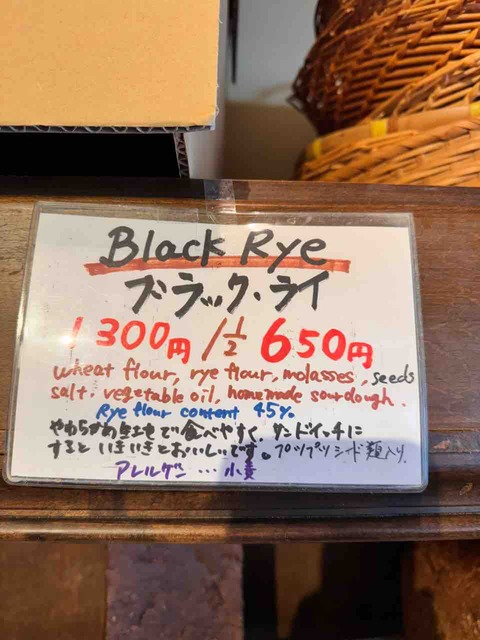 Black Rye
ブラック・ライ
1300円 / 1/2 650円
wheat flour, rye flour, molasses, seeds
salt. vegetable oil, homemade sourdough.
Rye flour content 45%
やわらかめ生地で食べやすく、サンドイッチに
すると いきいきとおいしいです。プツプツシード類入り.
アレルゲン … 小麦